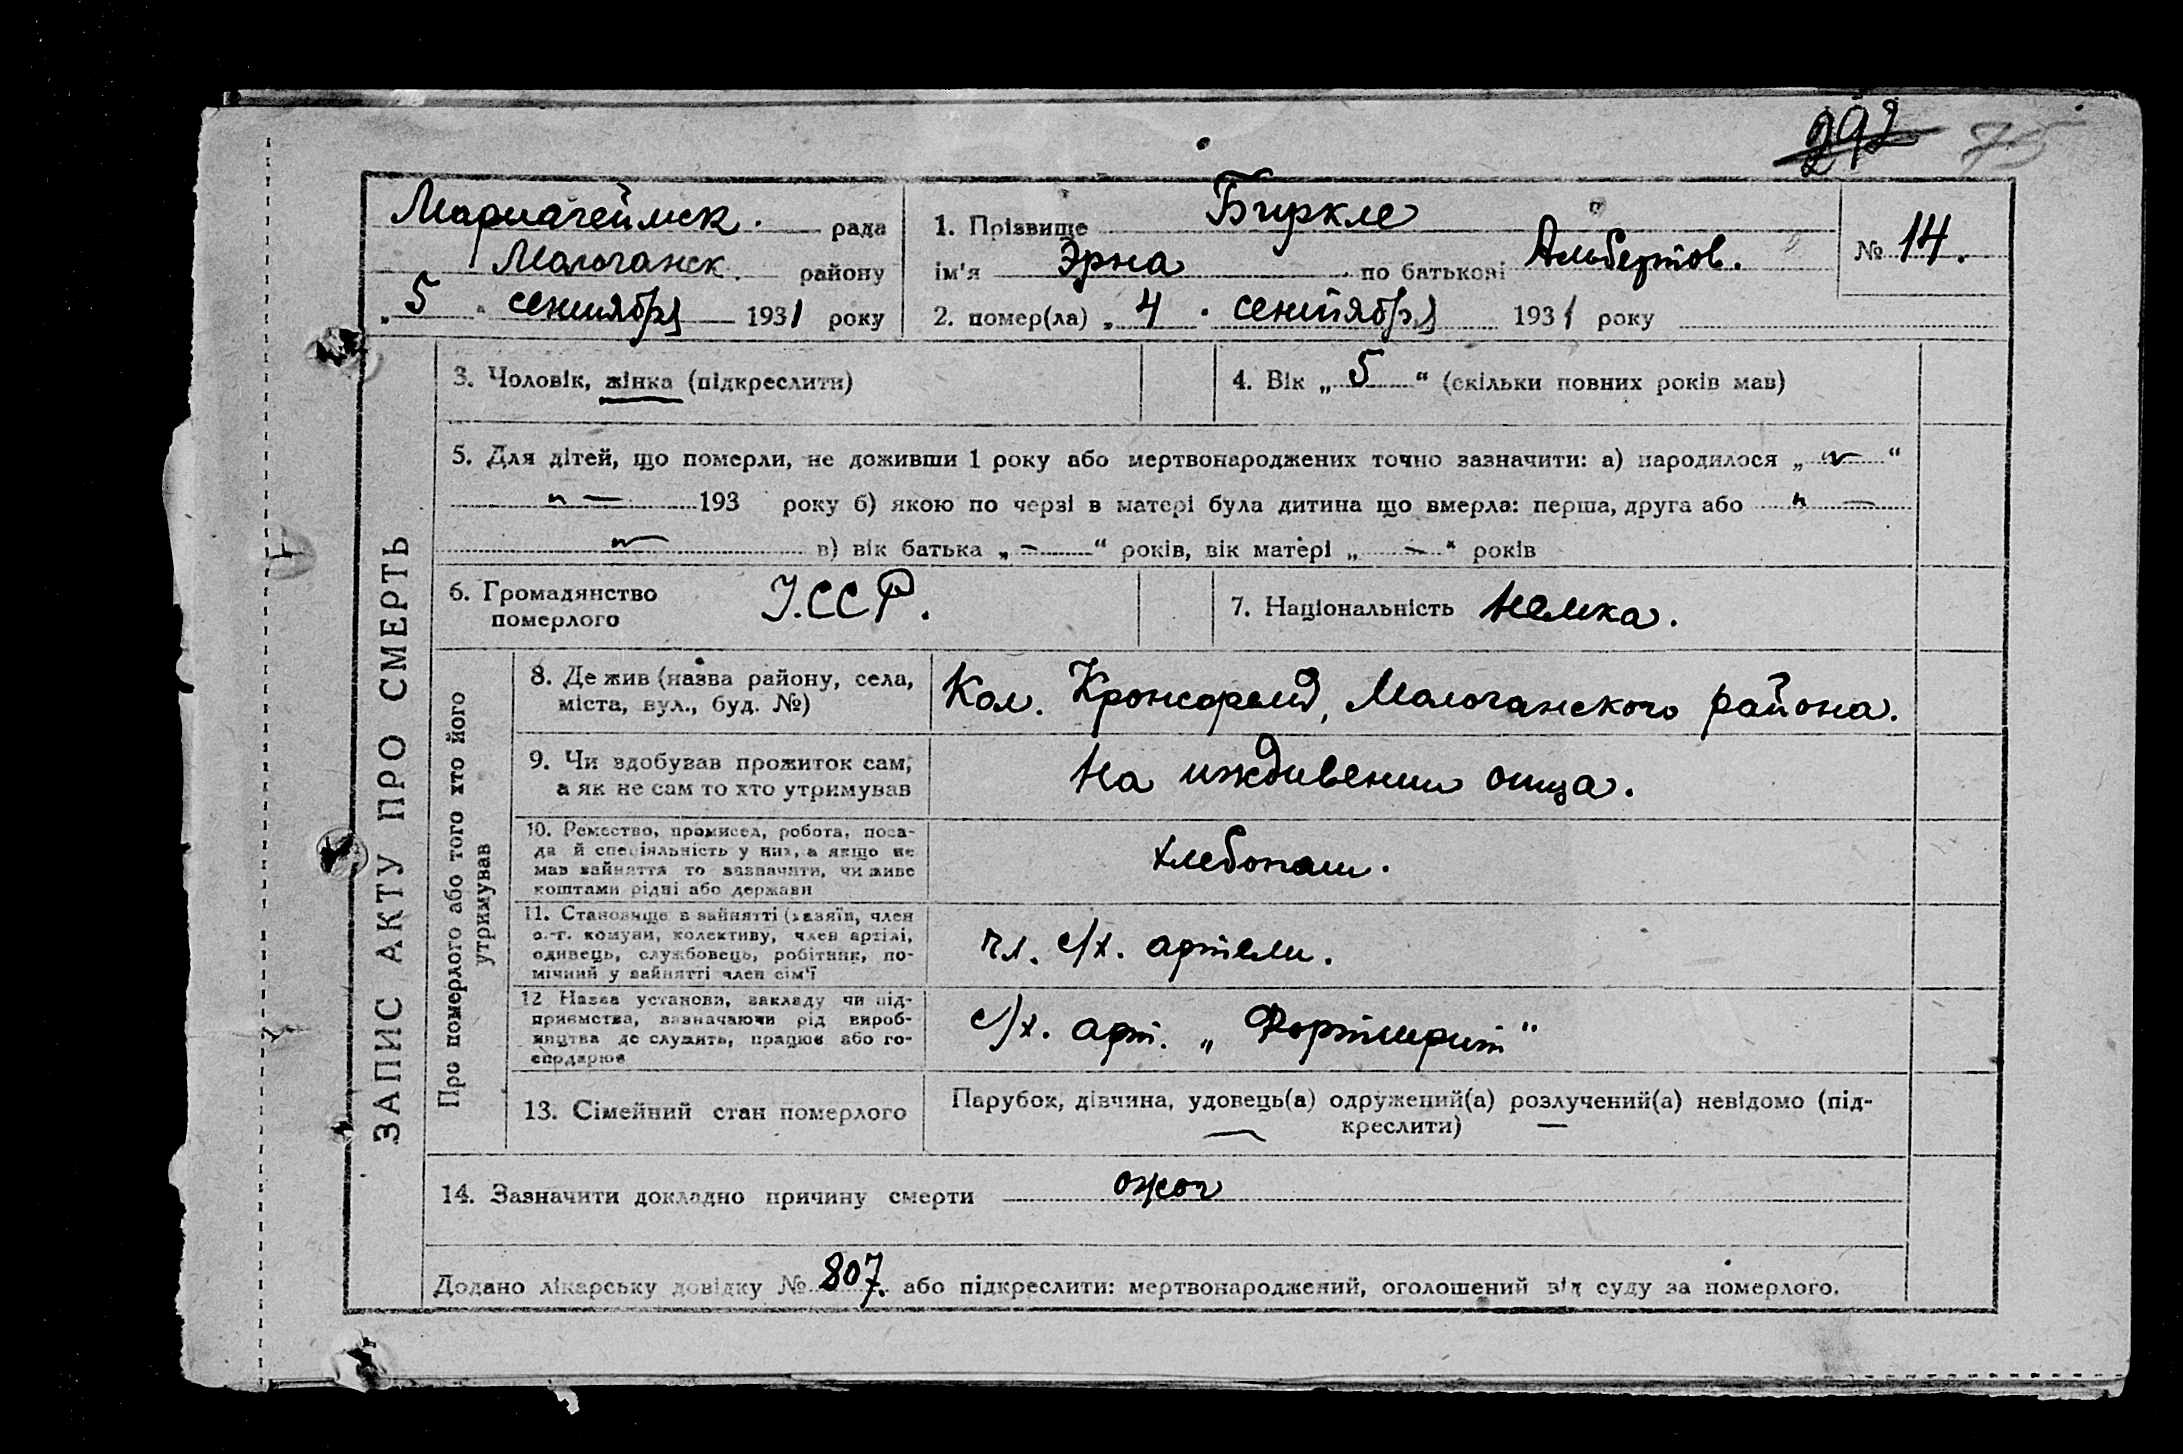 292 75
Мариагеймск. рада
Малочанск. району
„ 5 " сентября 1931 року
1. Прізвище Биркле
ім'я Эрна по батькові Альбертов.
№ 14.
2. помер(ла) „ 4 " сентября 1931 року
ЗАПИС АКТУ ПРО СМЕРТЬ
3. Чоловік, жінка (підкреслити)
4. Вік „ 5 “ (скільки повних років мав)
5. Для дітей, що померли, не доживши 1 року або мертвонароджених точно зазначити: а) народилося „ — “
" — 193 року б) якою по черзі в матері була дитина що вмерла: перша, друга або " —
в) вік батька „ — “ років, вік матері „ — “ років
6. Громадянство
померлого
У.ССР.
7. Національність Немка.
Про померлого або того хто його
утримував
8. Де жив (назва району, села,
міста, вул., буд. №)
Кол. Кронсфельд, Малочанского района.
9. Чи здобував прожиток сам,
а як не сам то хто утримував
На иждивении отца.
10. Ремество, промисел, робота, поса-
да й спеціяльність у них, а якщо не
мав зайняття то зазначити, чи живе
коштами рідні або держави
хлебопаш.
11. Становище в зайнятті (хазяїн, член
с.-г. комуни, колективу, член артілі,
одинець, службовець, робітник, по-
мічний у зайнятті член сім'ї
чл. с/х. артели.
12 Назва установи, закладу чи під-
приємства, зазначаючи рід вироб-
ництва де служить, працює або го-
сподарює
с/х. арт. „Фортшрит"
13. Сімейний стан померлого
Парубок, дівчина, удовець(а) одружений(а) розлучений(а) невідомо (під-
креслити)
14. Зазначити докладно причину смерти ожог
Додано лікарську довідку № 807. або підкреслити: мертвонароджений, оголошений від суду за померлого.